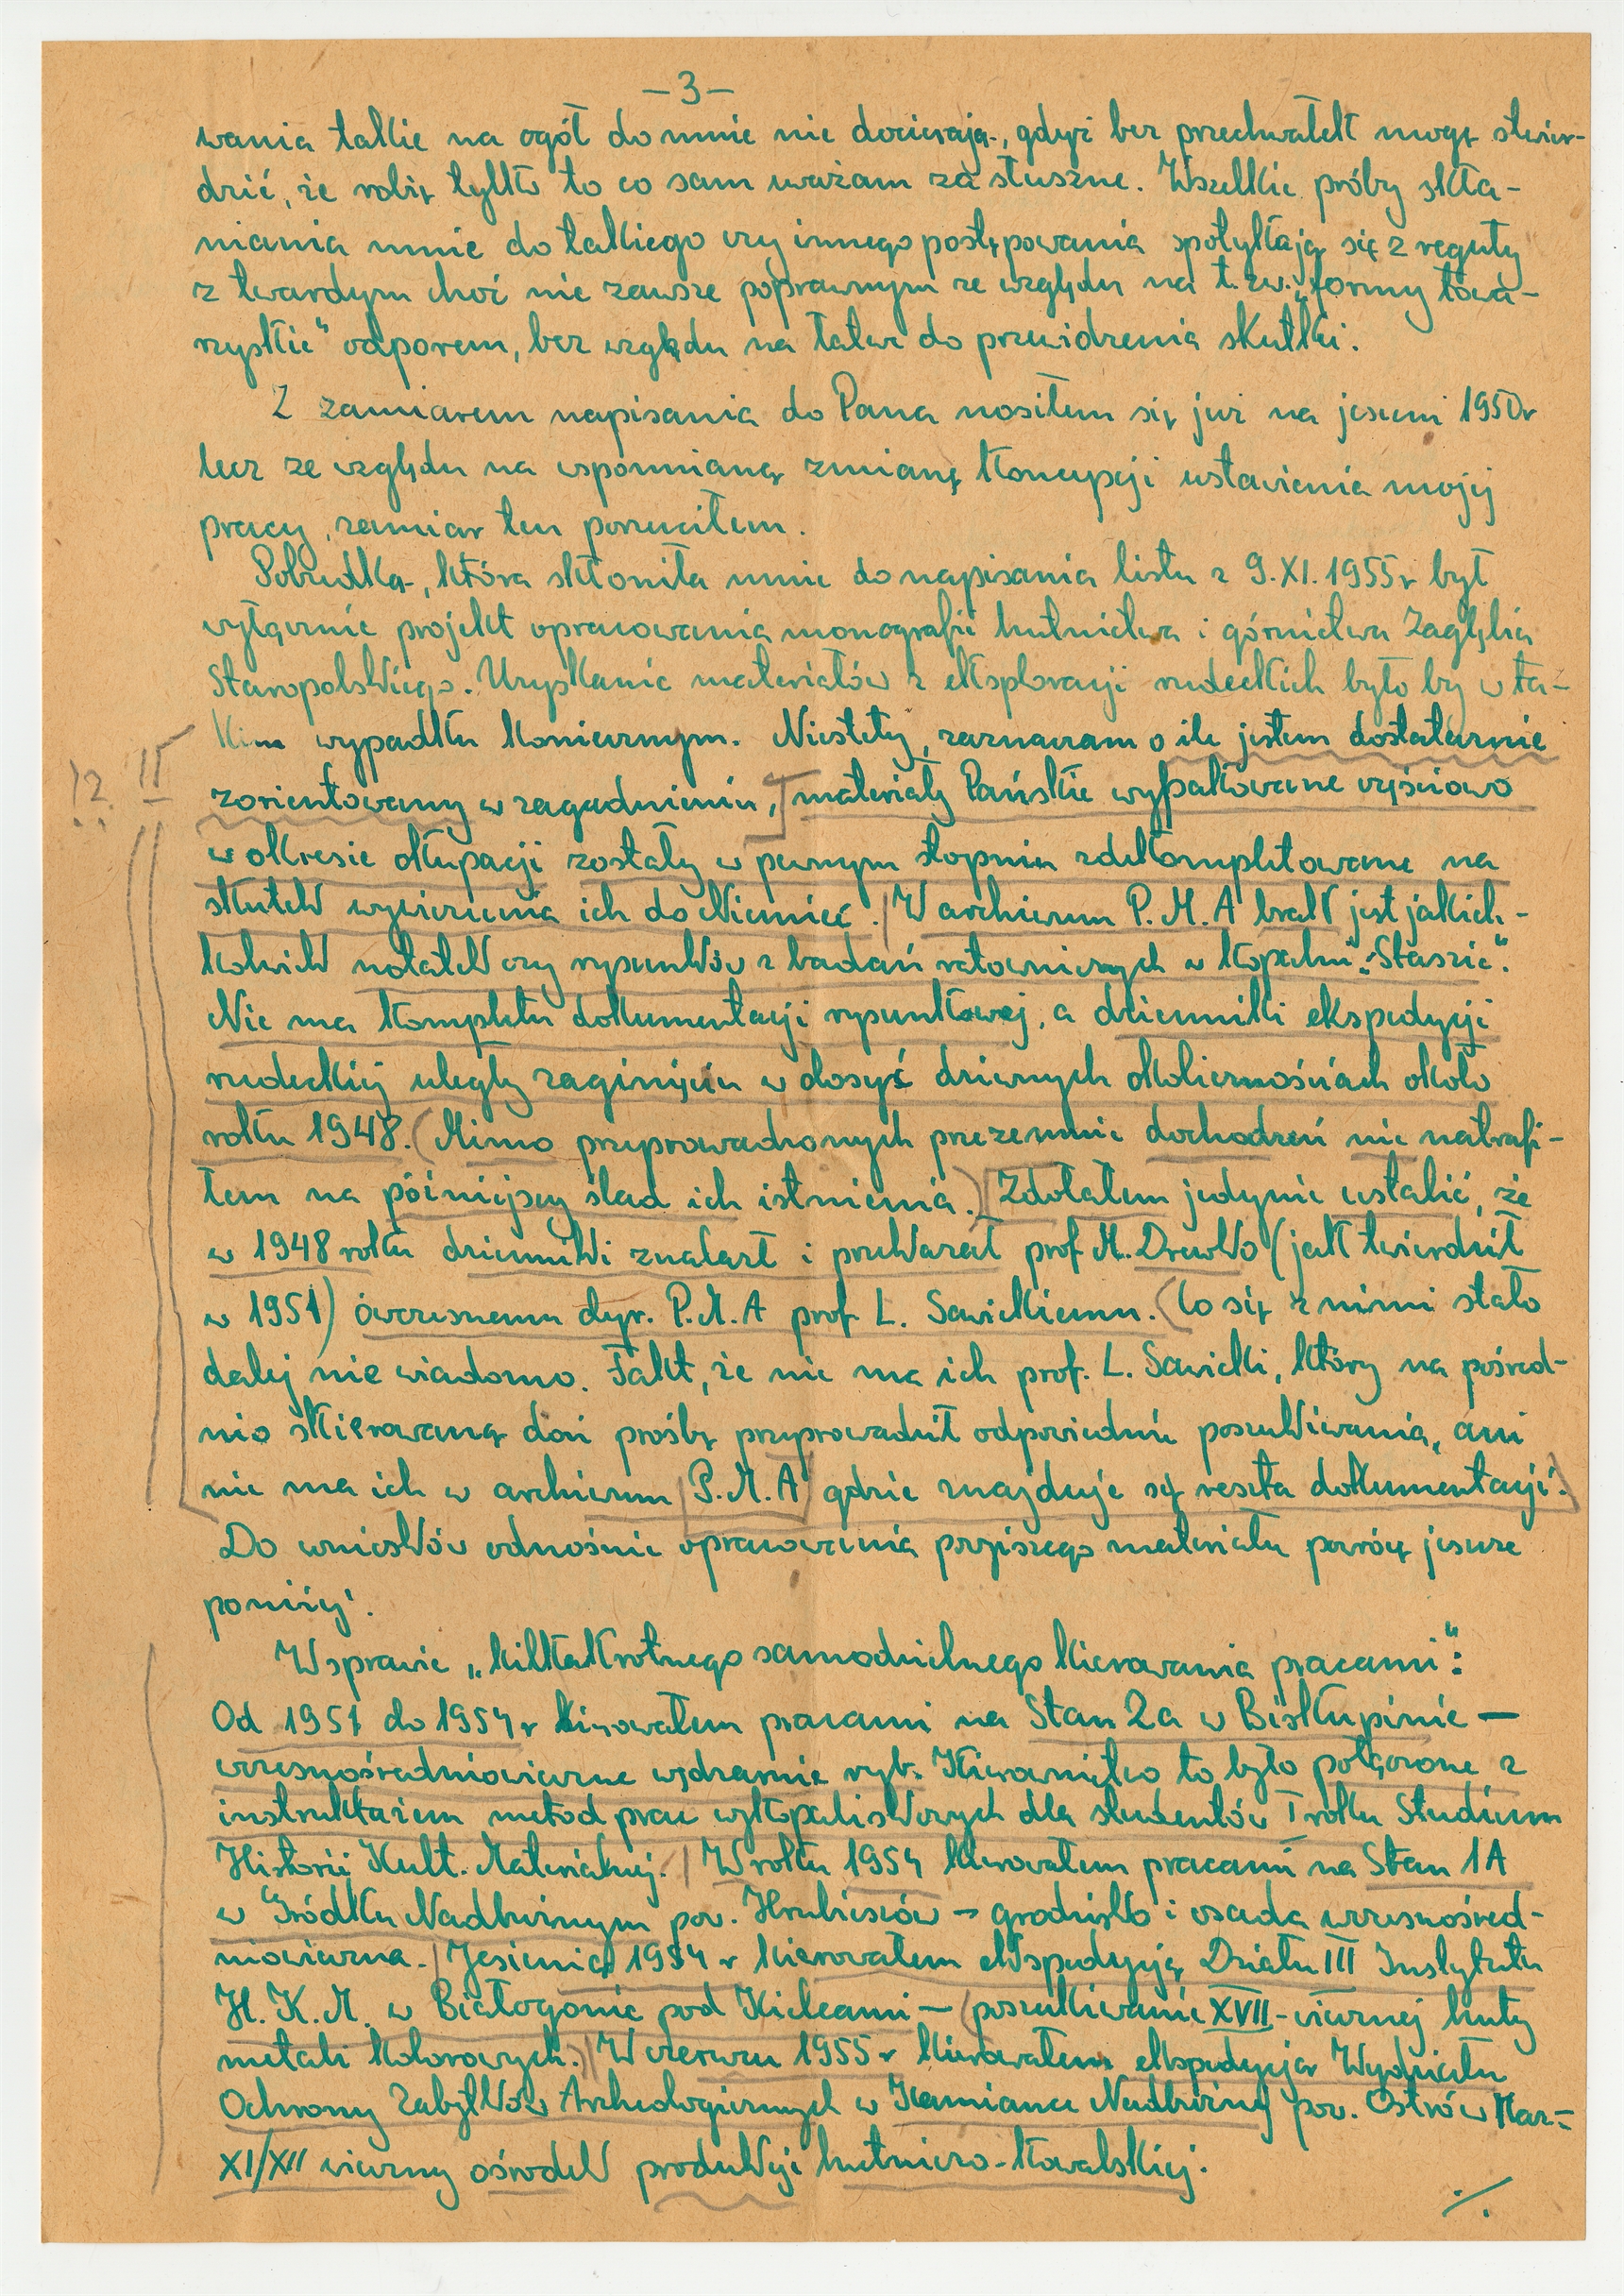 -3-
wania takie na ogół do mnie nie docierają, gdyż bez przechwałek mogę stwier-
dzić, że robię tylko to co sam uważam za słuszne. Wszelkie próby skła-
niania mnie do takiego czy innego postępowania spotykają się z reguły
z twardym choć nie zawsze poprawnym ze względu na t.zw. „formy towa-
rzyskie" odporem, bez względu na łatwe do przewidzenia skutki.
Z zamiarem napisania do Pana nosiłem się już na jesieni 1950r
lecz ze względu na wspomnianą zmianę koncepcji ustawienia mojej
pracy, zamiar ten porzuciłem.
Pobudką, która skłoniła mnie do napisania listu z 9.XI.1955r był
wyłącznie projekt opracowania monografii hutnictwa i górnictwa Zagłębia
Staropolskiego. Uzyskanie materiałów z eksploracji rudeckich było by w ta-
kim wypadku koniecznym. Niestety, zaznaczam o ile jestem dostatecznie
!?. II
zorientowany w zagadnieniu, materiały Pańskie wypakowane częściowo
w okresie okupacji zostały w pewnym stopniu zdekompletowane na
skutek wywiezienia ich do Niemiec. W archiwum P.M.A brak jest jakich-
kolwiek notatek czy rysunków z badań ratowniczych w kopalni „Staszic".
Nie ma kompletu dokumentacji rysunkowej, a dzienniki ekspedycji
rudeckiej uległy zaginięciu w dosyć dziwnych okolicznościach około
roku 1948. (Mimo przyprowadzonych przezemnie dochodzeń nie natrafi-
łem na późniejszy ślad ich istnienia.) Zdołałem jedynie ustalić, że
w 1948 roku dzienniki znalazł i przekazał prof M. Drewko (jak twierdził
w 1951) ówczesnemu dyr. P.M.A prof L. Sawickiemu. (Co się z nimi stało
dalej nie wiadomo. Fakt, że nie ma ich prof. L. Sawicki, który na pośred-
nio skierowaną doń prośbę przyprowadził odpowiednie poszukiwania, ani
nie ma ich w archiwum P.M.A gdzie znajduje się reszta dokumentacji.
Do wniosków odnośnie opracowania pozostałego materiału powrócę jeszcze
poniżej.
W sprawie „kilkakrotnego samodzielnego kierowania pracami":
Od 1951 do 1954r kierowałem pracami na Stan 2a w Biskupinie —
wczesnośredniowieczne wędzarnie ryb. Kierownictwo to było połączone z
instruktażem metod prac wykopaliskowych dla studentów I roku Studium
Historii Kult. Materialnej. W roku 1954 kierowałem pracami na Stan 1A
w Gródku Nadbużnym pow. Hrubieszów - grodzisko i osada wczesnośred-
niowieczna. Jesienią 1954 r kierowałem ekspedycją Działu III Instytutu
H.K.M. w Białogonie pod Kielcami - poszukiwanie XVII-wiecznej huty
metali kolorowych. W czerwcu 1955 r kierowałem ekspedycją Wydziału
Ochrony Zabytków Archeologicznych w Kamiance Nadbużnej pow. Ostrów Maz-
XI/XII wieczny ośrodek produkcji hutniczo-kowalskiej.
./.